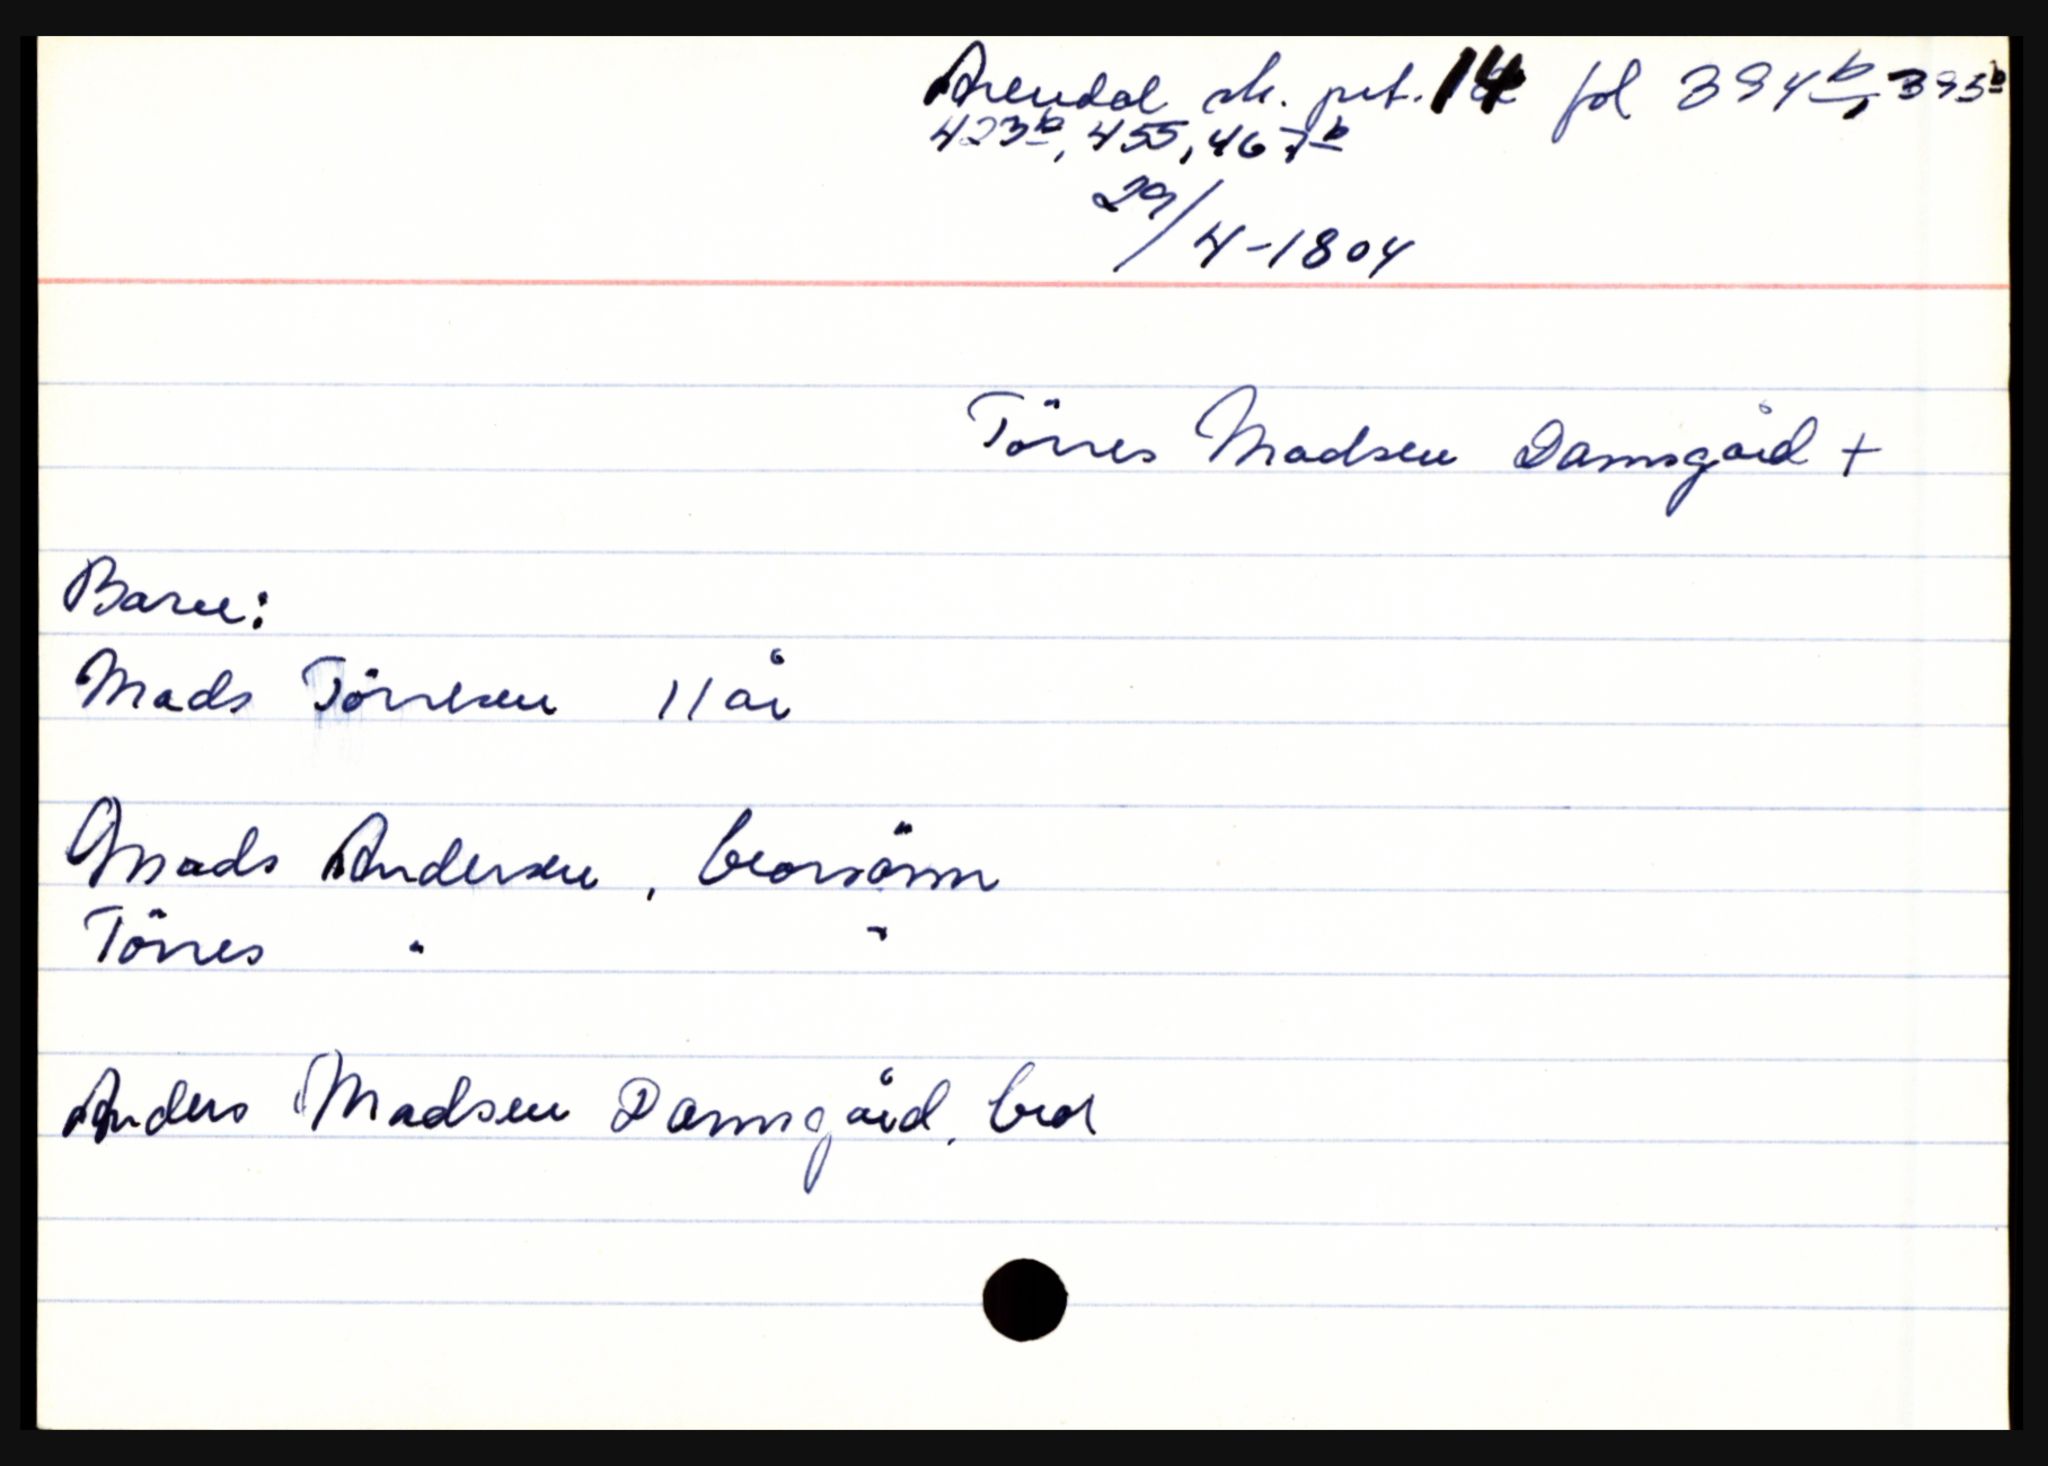 Arendal sk. prot. 14 fol 394b, 395b
423b, 455, 467b
29/4-1804
Törres Madsen Damsgård +
Barn:
Mads Törresen 11 år
Mads Andersen, brorsönn
Törres " "
Anders Madsen Damsgård, bror